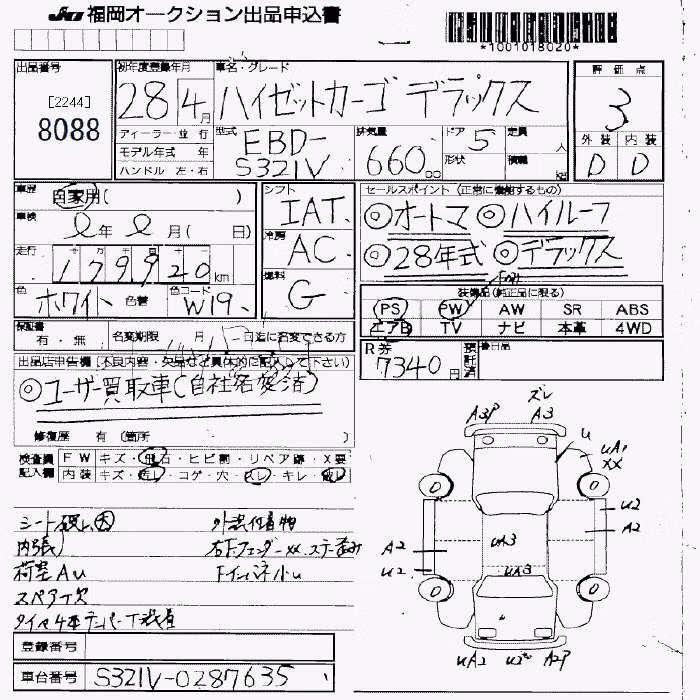 JU 福岡オークション出品申込書
*1001018020*
出品番号
[2244]
8088
初年度登録年月
28年 4月
車名・グレード
ハイゼットカーゴ デラックス
評価点
3
外装 内装
D D
ディーラー・並行
モデル年式 年
ハンドル 左・右
型式
EBD-
S321V
排気量
660cc
ドア 5
形状
定員 人
積載 kg
車歴
自家用( )
車検
年 月( 日)
走行
179920km
色
ホワイト 色替
色コード
W19
シフト
IAT
冷房
AC
燃料
G
セールスポイント (正常に機能するもの)
◎オートマ ◎ハイルーフ
◎28年式 ◎デラックス
装備品(純正品に限る)
PS PW AW SR ABS
エアB TV ナビ 本革 4WD
保証書
有・無
名変期限 月 日迄に名変できる方
R券
7340円
預託済
後日品
出品店申告欄 [不良内容・欠品など具体的に記入して下さい]
◎ユーザー買取車(自社名変済)
修復歴 有 (箇所 )
検査員 FW キズ・飛石・ヒビ割・リペア跡・X要
記入欄 内装 キズ・汚レ・コゲ・穴・スレ・キレ・破レ
シート破レ大
内張
荷室AU
スペア欠
タイヤ4本
外装付着物
右Fフェンダーxx、ステー歪み
FインパネホU
ズレ
A3P A3
U
UA1
XX
U2
A2
A2
U2
UA3
UA3
UA2 U2 A2P
登録番号
車台番号 S321V-0287635